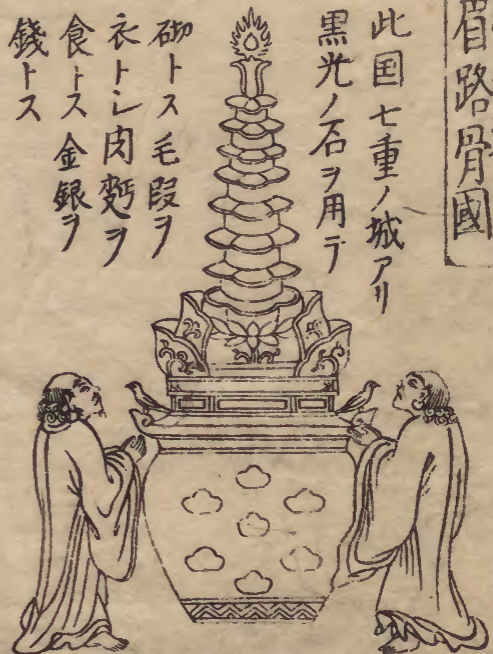 眉路骨國
此国七重ノ城アリ
黒光ノ石ヲ用テ
砌トス毛段ヲ
衣トシ肉麪ヲ
食トス金銀ヲ
錢トス